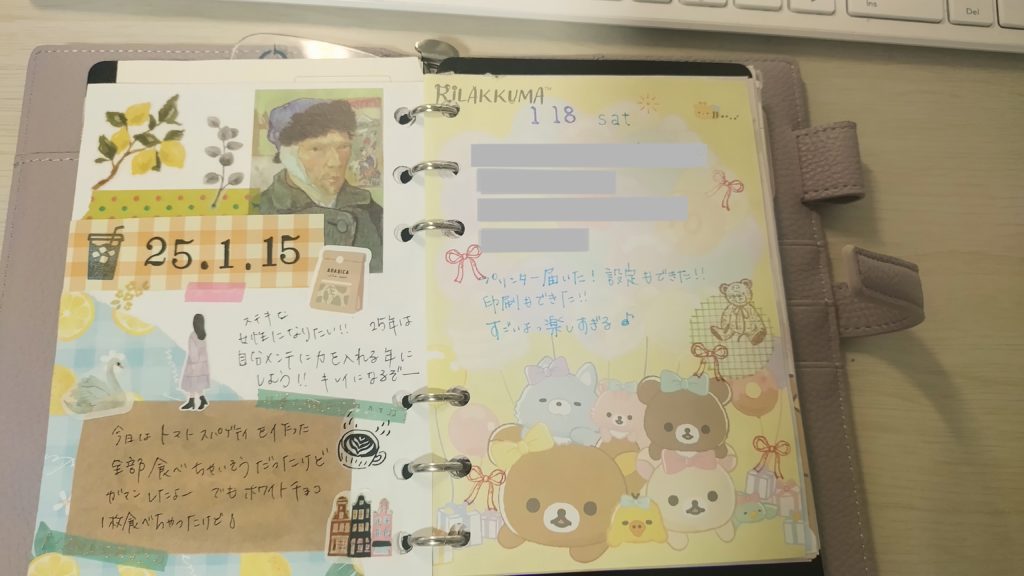 25.1.15
ARABICA
ステキな
女性になりたい!! 25年は
自分メンテに力を入れる年に
しよう!! キレイになるぞー
今日はトマトスパゲティを作った
全部食べちゃいそうだったけど
ガマンしたよー でもホワイトチョコ
1枚食べちゃったけど
RILAKKUMA™
1 18 sat
パリンター届いた! 設定もできた!!
印刷もできた!!
すごいまっ楽しすぎる♪
Ins
Del